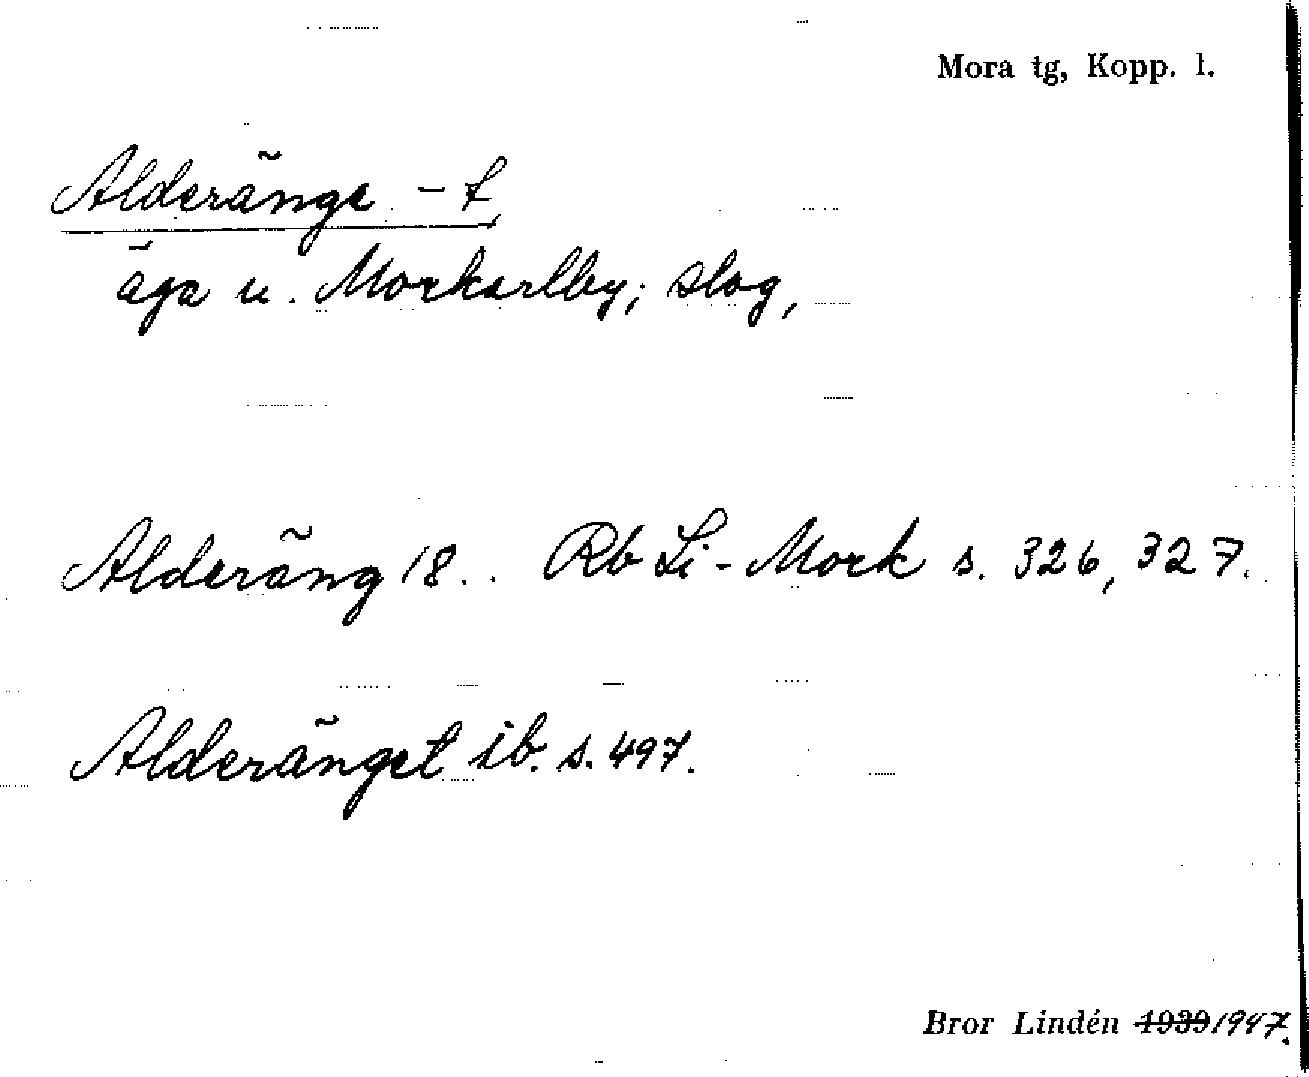 Mora tg, Kopp. l.
Alderänge -t
äga u. Morkarlby; slog,
Alderäng 18.. Rb Li-Mork s. 326, 327.
Alderänget ib. s. 497.
Bror Lindén 1939 1947.